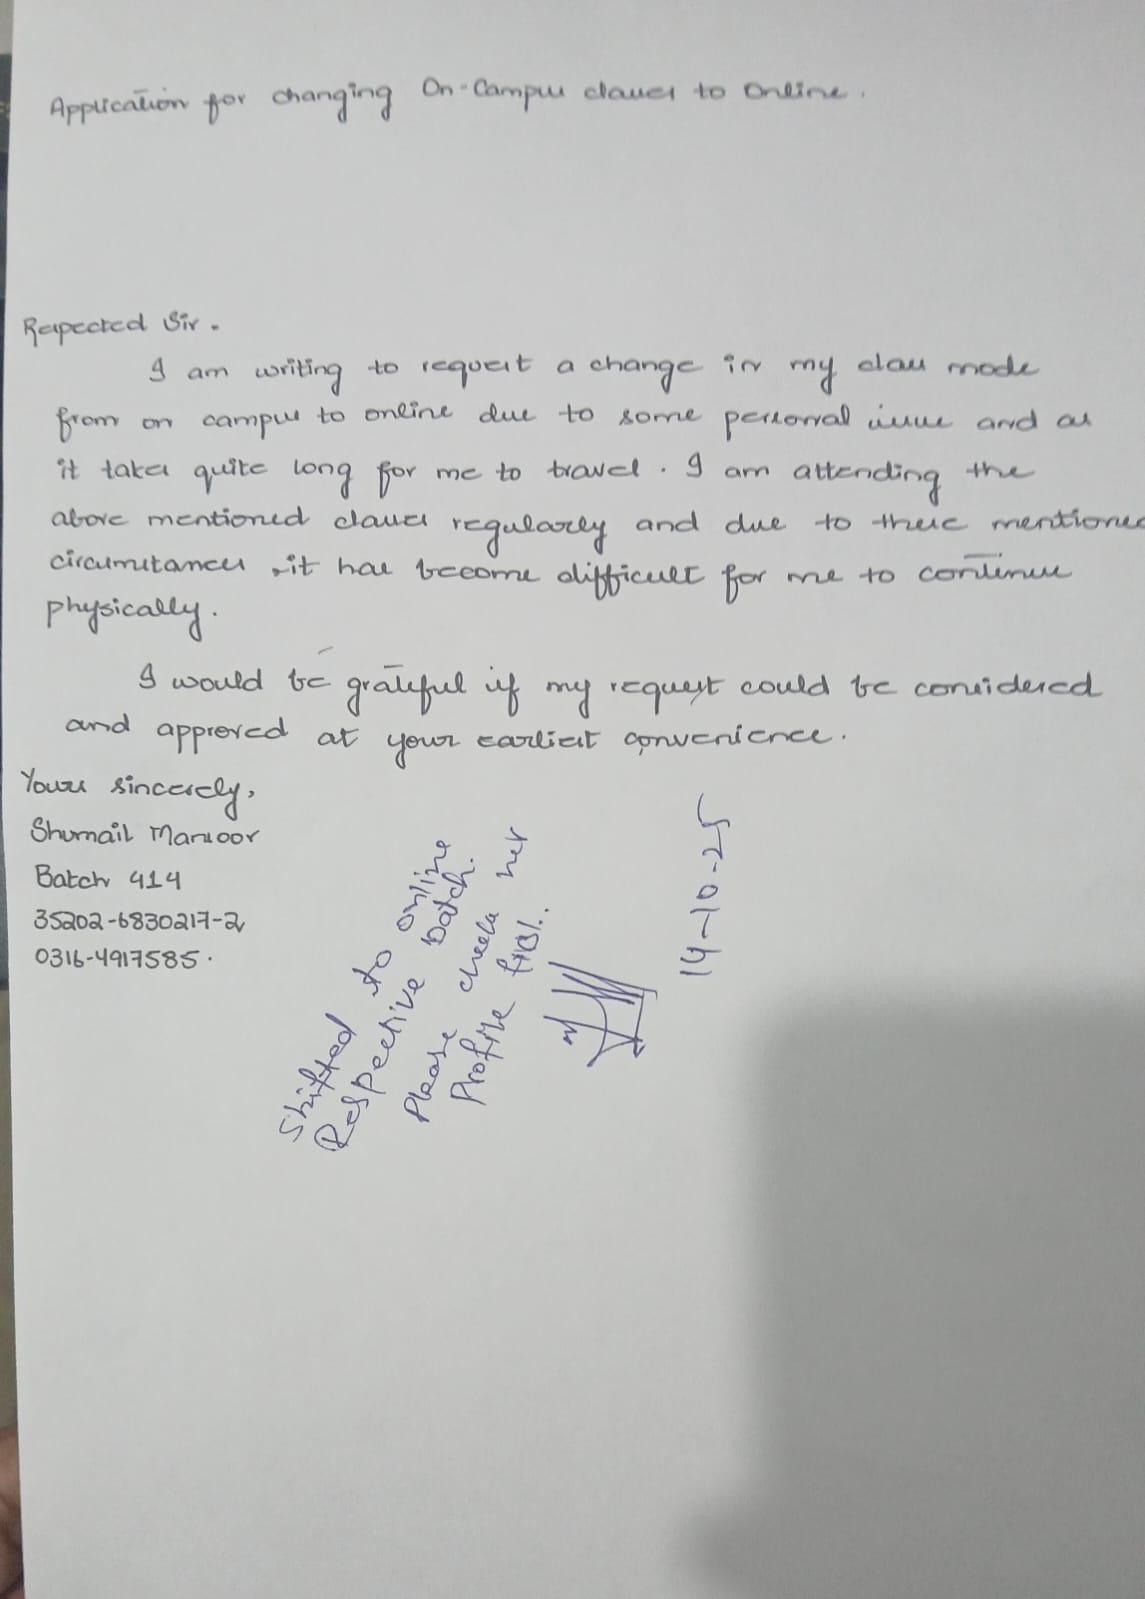 Application for changing On-Campus classes to Online.
Respected Sir.
I am writing to request a change in my class mode
from on campus to online due to some personal issue and as
it takes quite long for me to travel. I am attending the
above mentioned classes regularly and due to these mentioned
circumstances, it has become difficult for me to continue
physically.
I would be grateful if my request could be considered
and approved at your earliest convenience.
Yours sincerely,
Shumail Mansoor
Batch 414
35202-6830217-2
0316-4917585.
Shifted to online
Respective batch.
Please check her
Profile first..
14-10-25